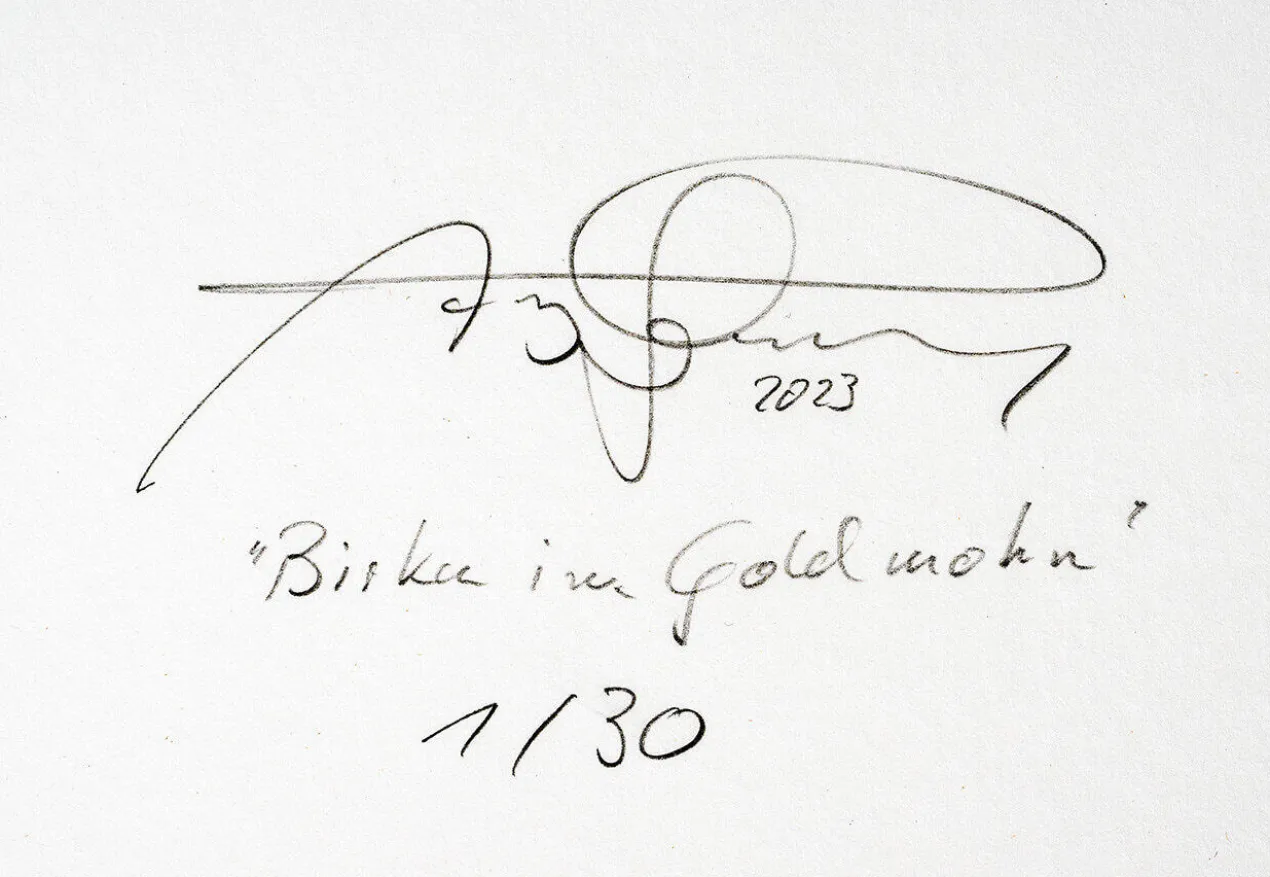 2023
"Birka im Goldmohn"
1/30